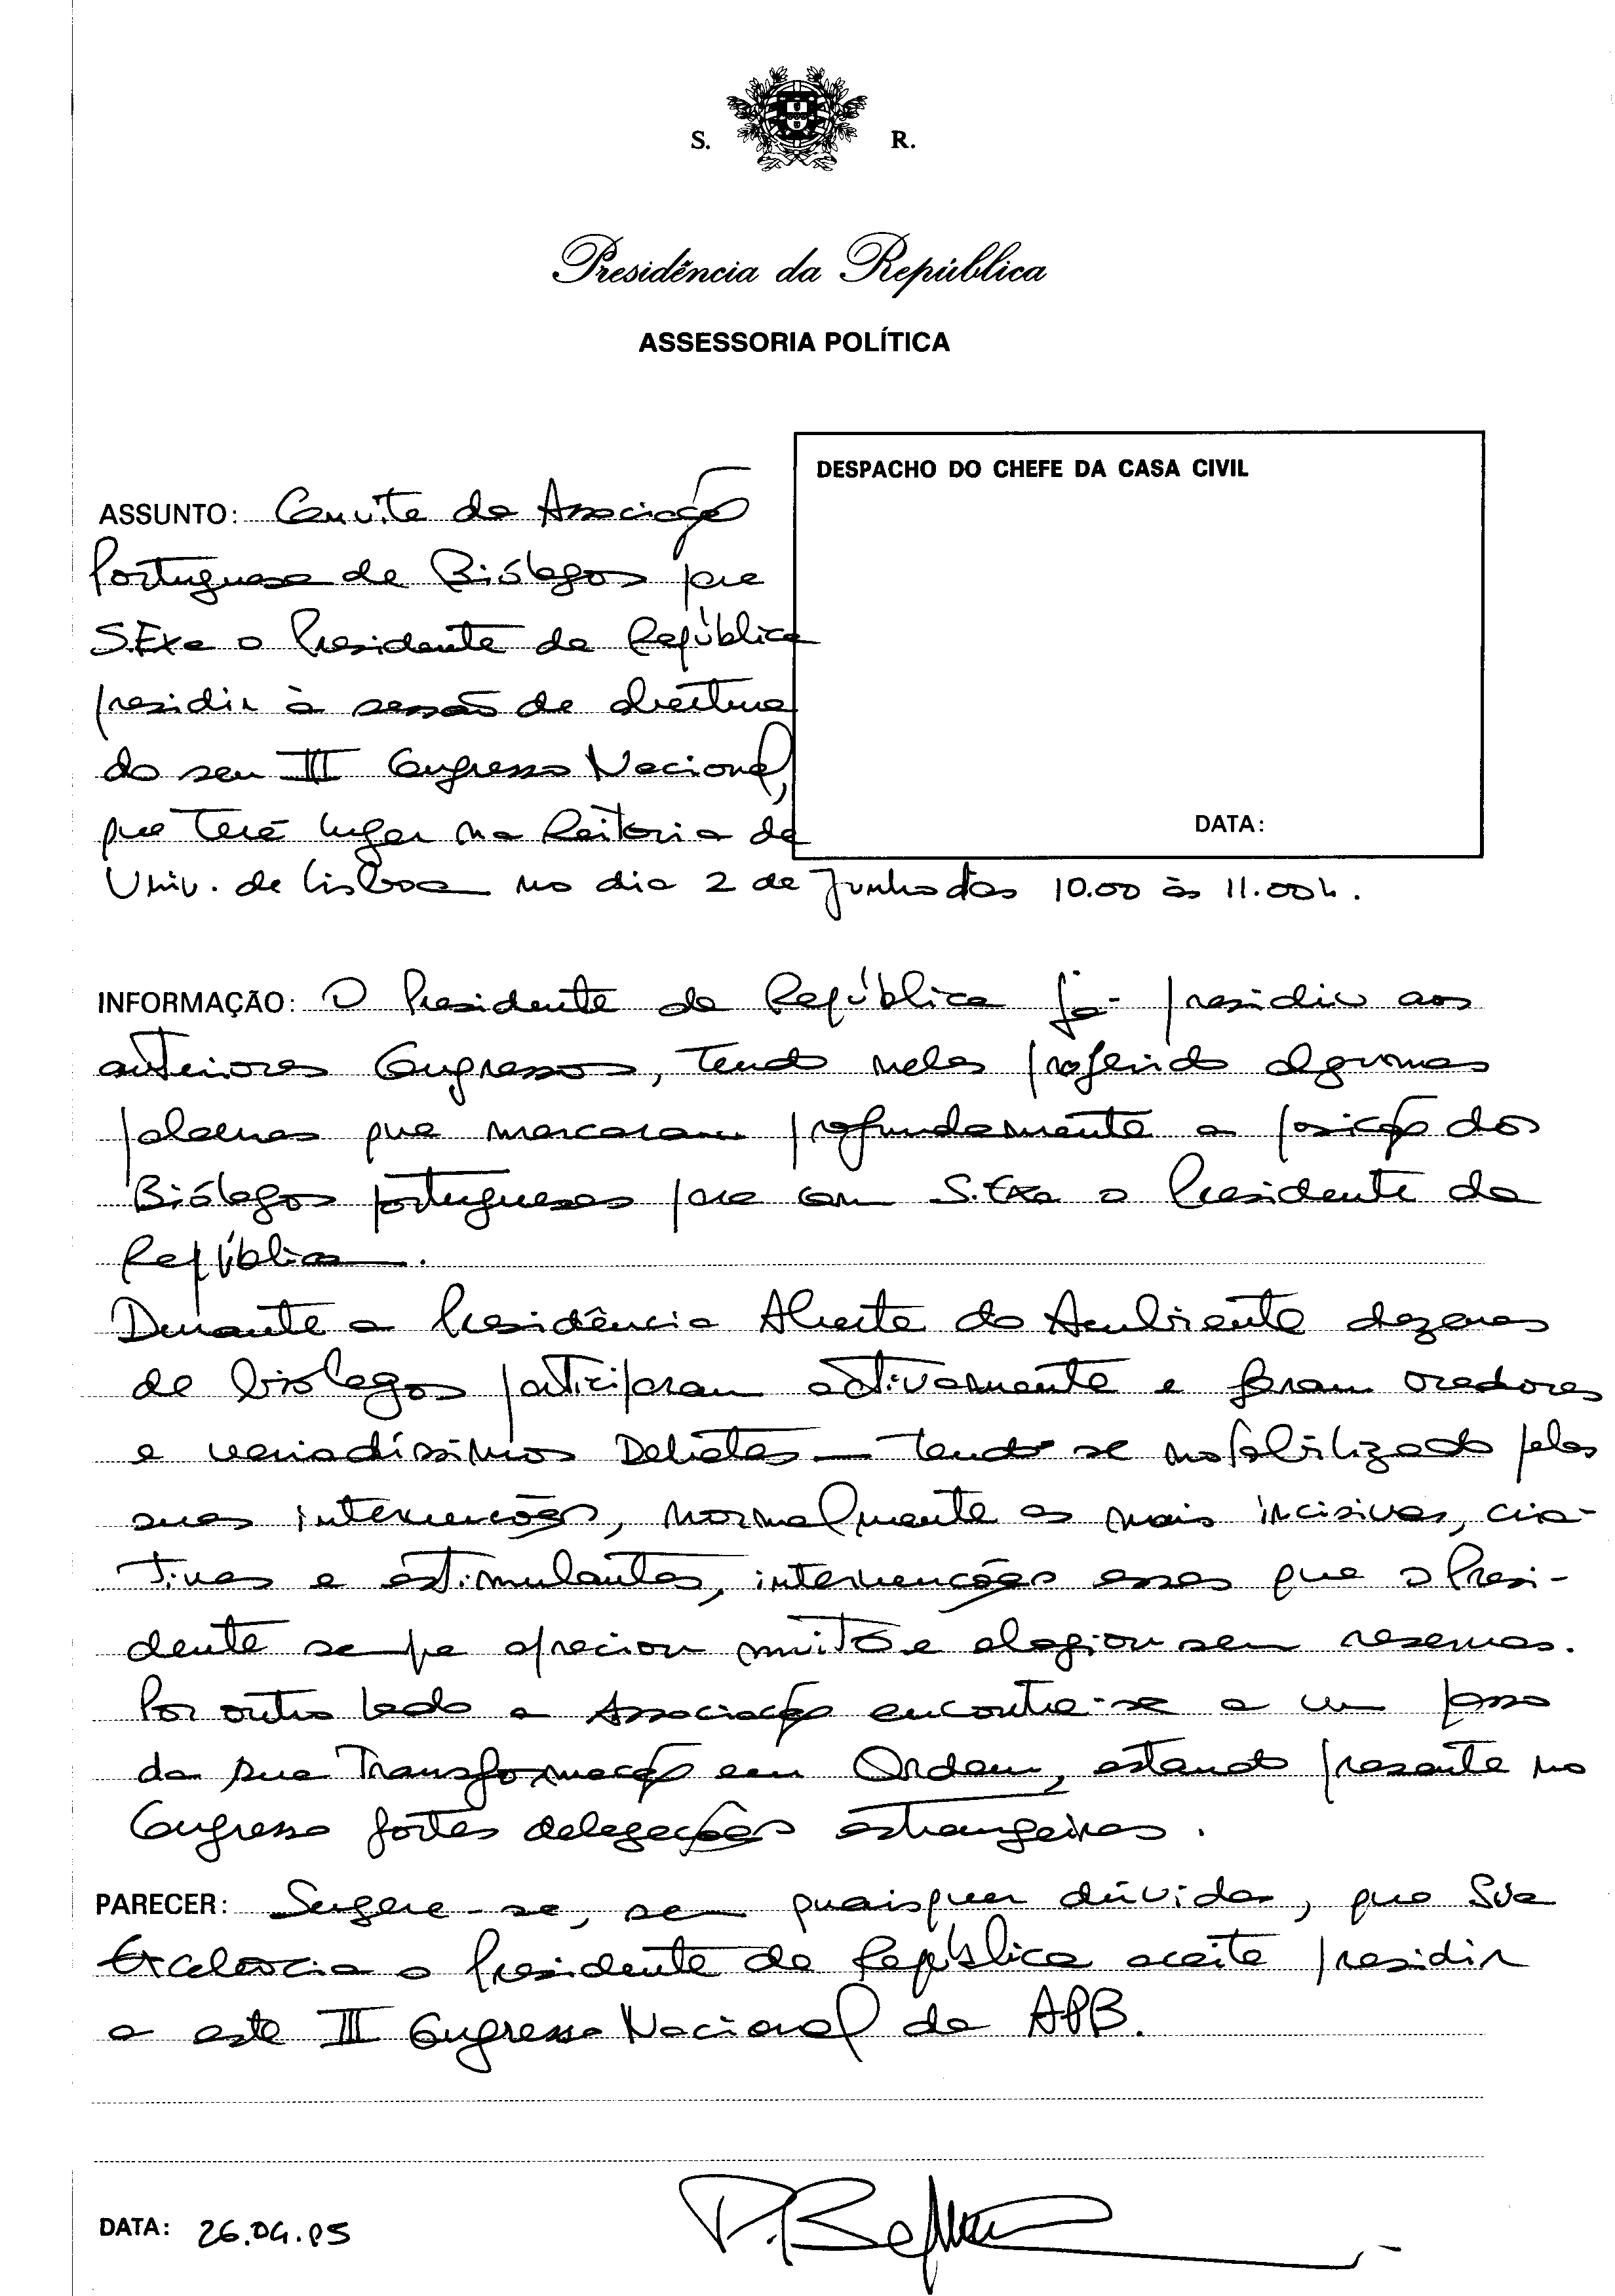 S. R.
Presidência da República
ASSESSORIA POLÍTICA
DESPACHO DO CHEFE DA CASA CIVIL
DATA:
ASSUNTO: Convite da Associação
Portuguesa de Biólogos para
S.Exa o Presidente da República
presidir à sessão de abertura
do seu III Congresso Nacional,
que terá lugar na Reitoria da
Univ. de Lisboa no dia 2 de Junho das 10.00 às 11.00h.
INFORMAÇÃO: O Presidente da República já presidiu aos
anteriores Congressos, tendo neles proferido algumas
palavras que marcaram profundamente a posição dos
Biólogos portugueses para com S.Exa o Presidente da
República.
Durante a Presidência Aberta do Ambiente dezenas
de biólogos participaram activamente e foram oradores
e variadíssimos Debates — tendo se notabilizado pelas
suas intervenções, normalmente as mais incisivas, cria-
tivas e estimulantes, intervenções essas que o Presi-
dente sempre apreciou muito e elogiou sem reservas.
Por outro lado a Associação encontra-se a um passo
da sua Transformação em Ordem, estando presente no
Congresso fortes delegações estrangeiras.
PARECER: Sugere-se, sem quaisquer dúvidas, que Sua
Excelência o Presidente da República aceite presidir
a este III Congresso Nacional da APB.
DATA: 26.04.95